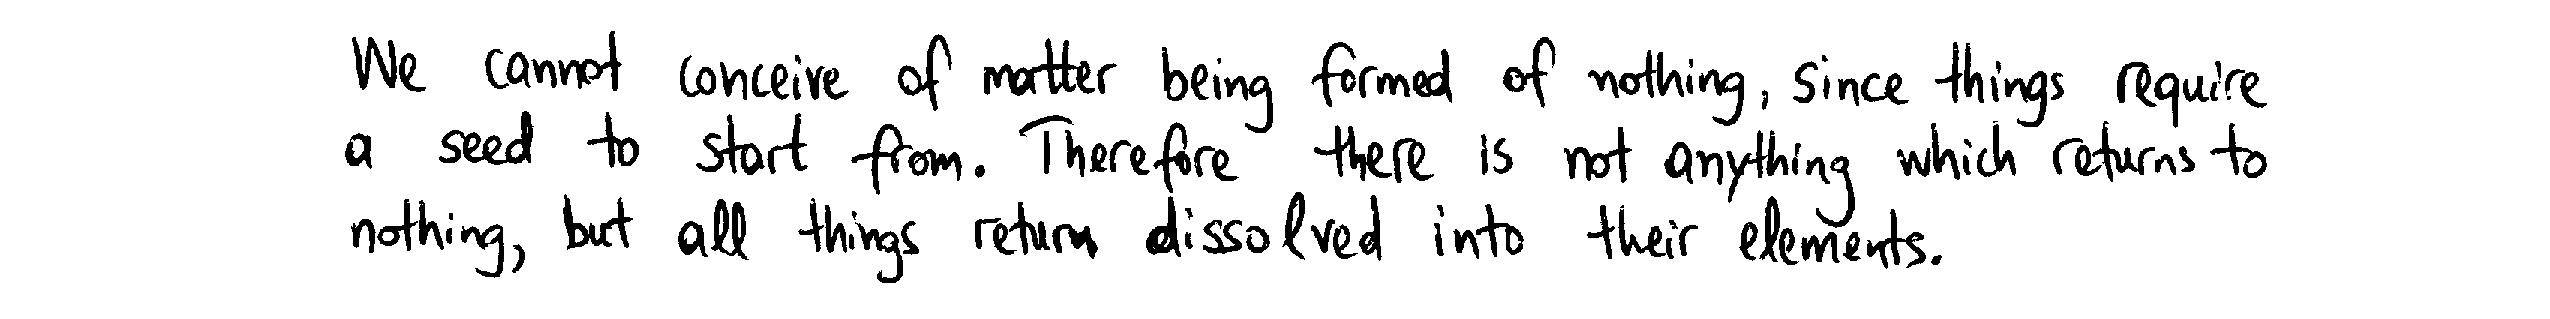 We cannot conceive of matter being formed of nothing, since things require
a seed to start from. Therefore there is not anything which returns to
nothing, but all things return dissolved into their elements.